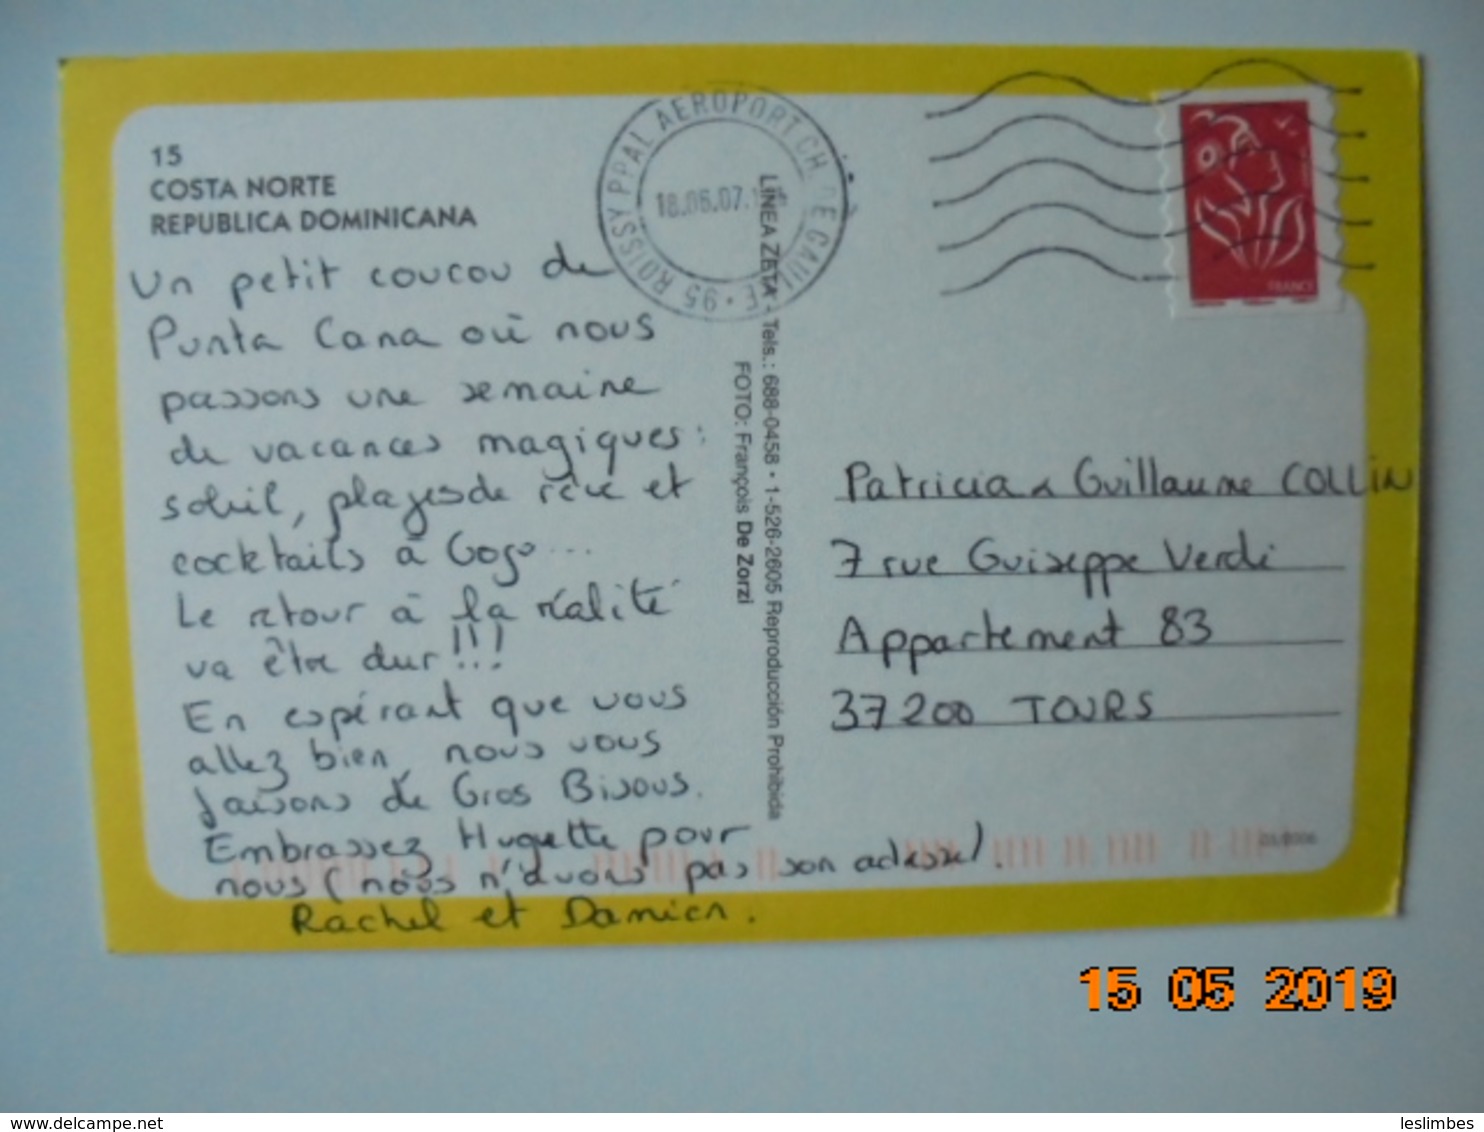 15
COSTA NORTE
REPUBLICA DOMINICANA
Un petit coucou de
Punta Cana où nous
passons une semaine
de vacances magiques :
soleil, plages de rêve et
cocktails à Gogo...
Le retour à la réalité
va être dur !!!
En espérant que vous
allez bien, nous vous
faisons de Gros Bisous.
Embrassez Huguette pour
nous (nous n'avons pas son adresse).
Rachel et Damien.
ROISSY PPAL AEROPORT CH DE GAULLE • 95
18.06.07
LINEA ZETA • Tels.: 688-0458 • 1-526-2605 Reproducción Prohibida
FOTO: François De Zorzi
FRANCE
Patricia & Guillaume COLLIN
7 rue Guiseppe Verdi
Appartement 83
37200 TOURS
15 05 2019
leslimbes